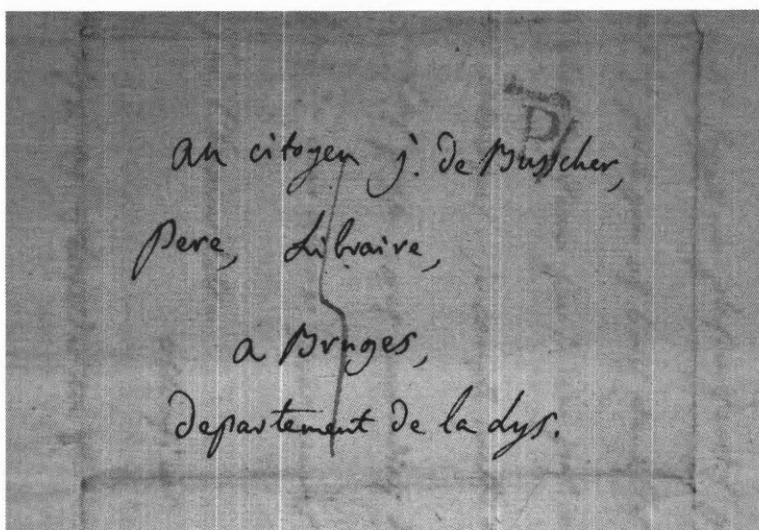 au citoyen j. de Busscher,
Pere, Libraire,
a Bruges,
departement de la Lys.